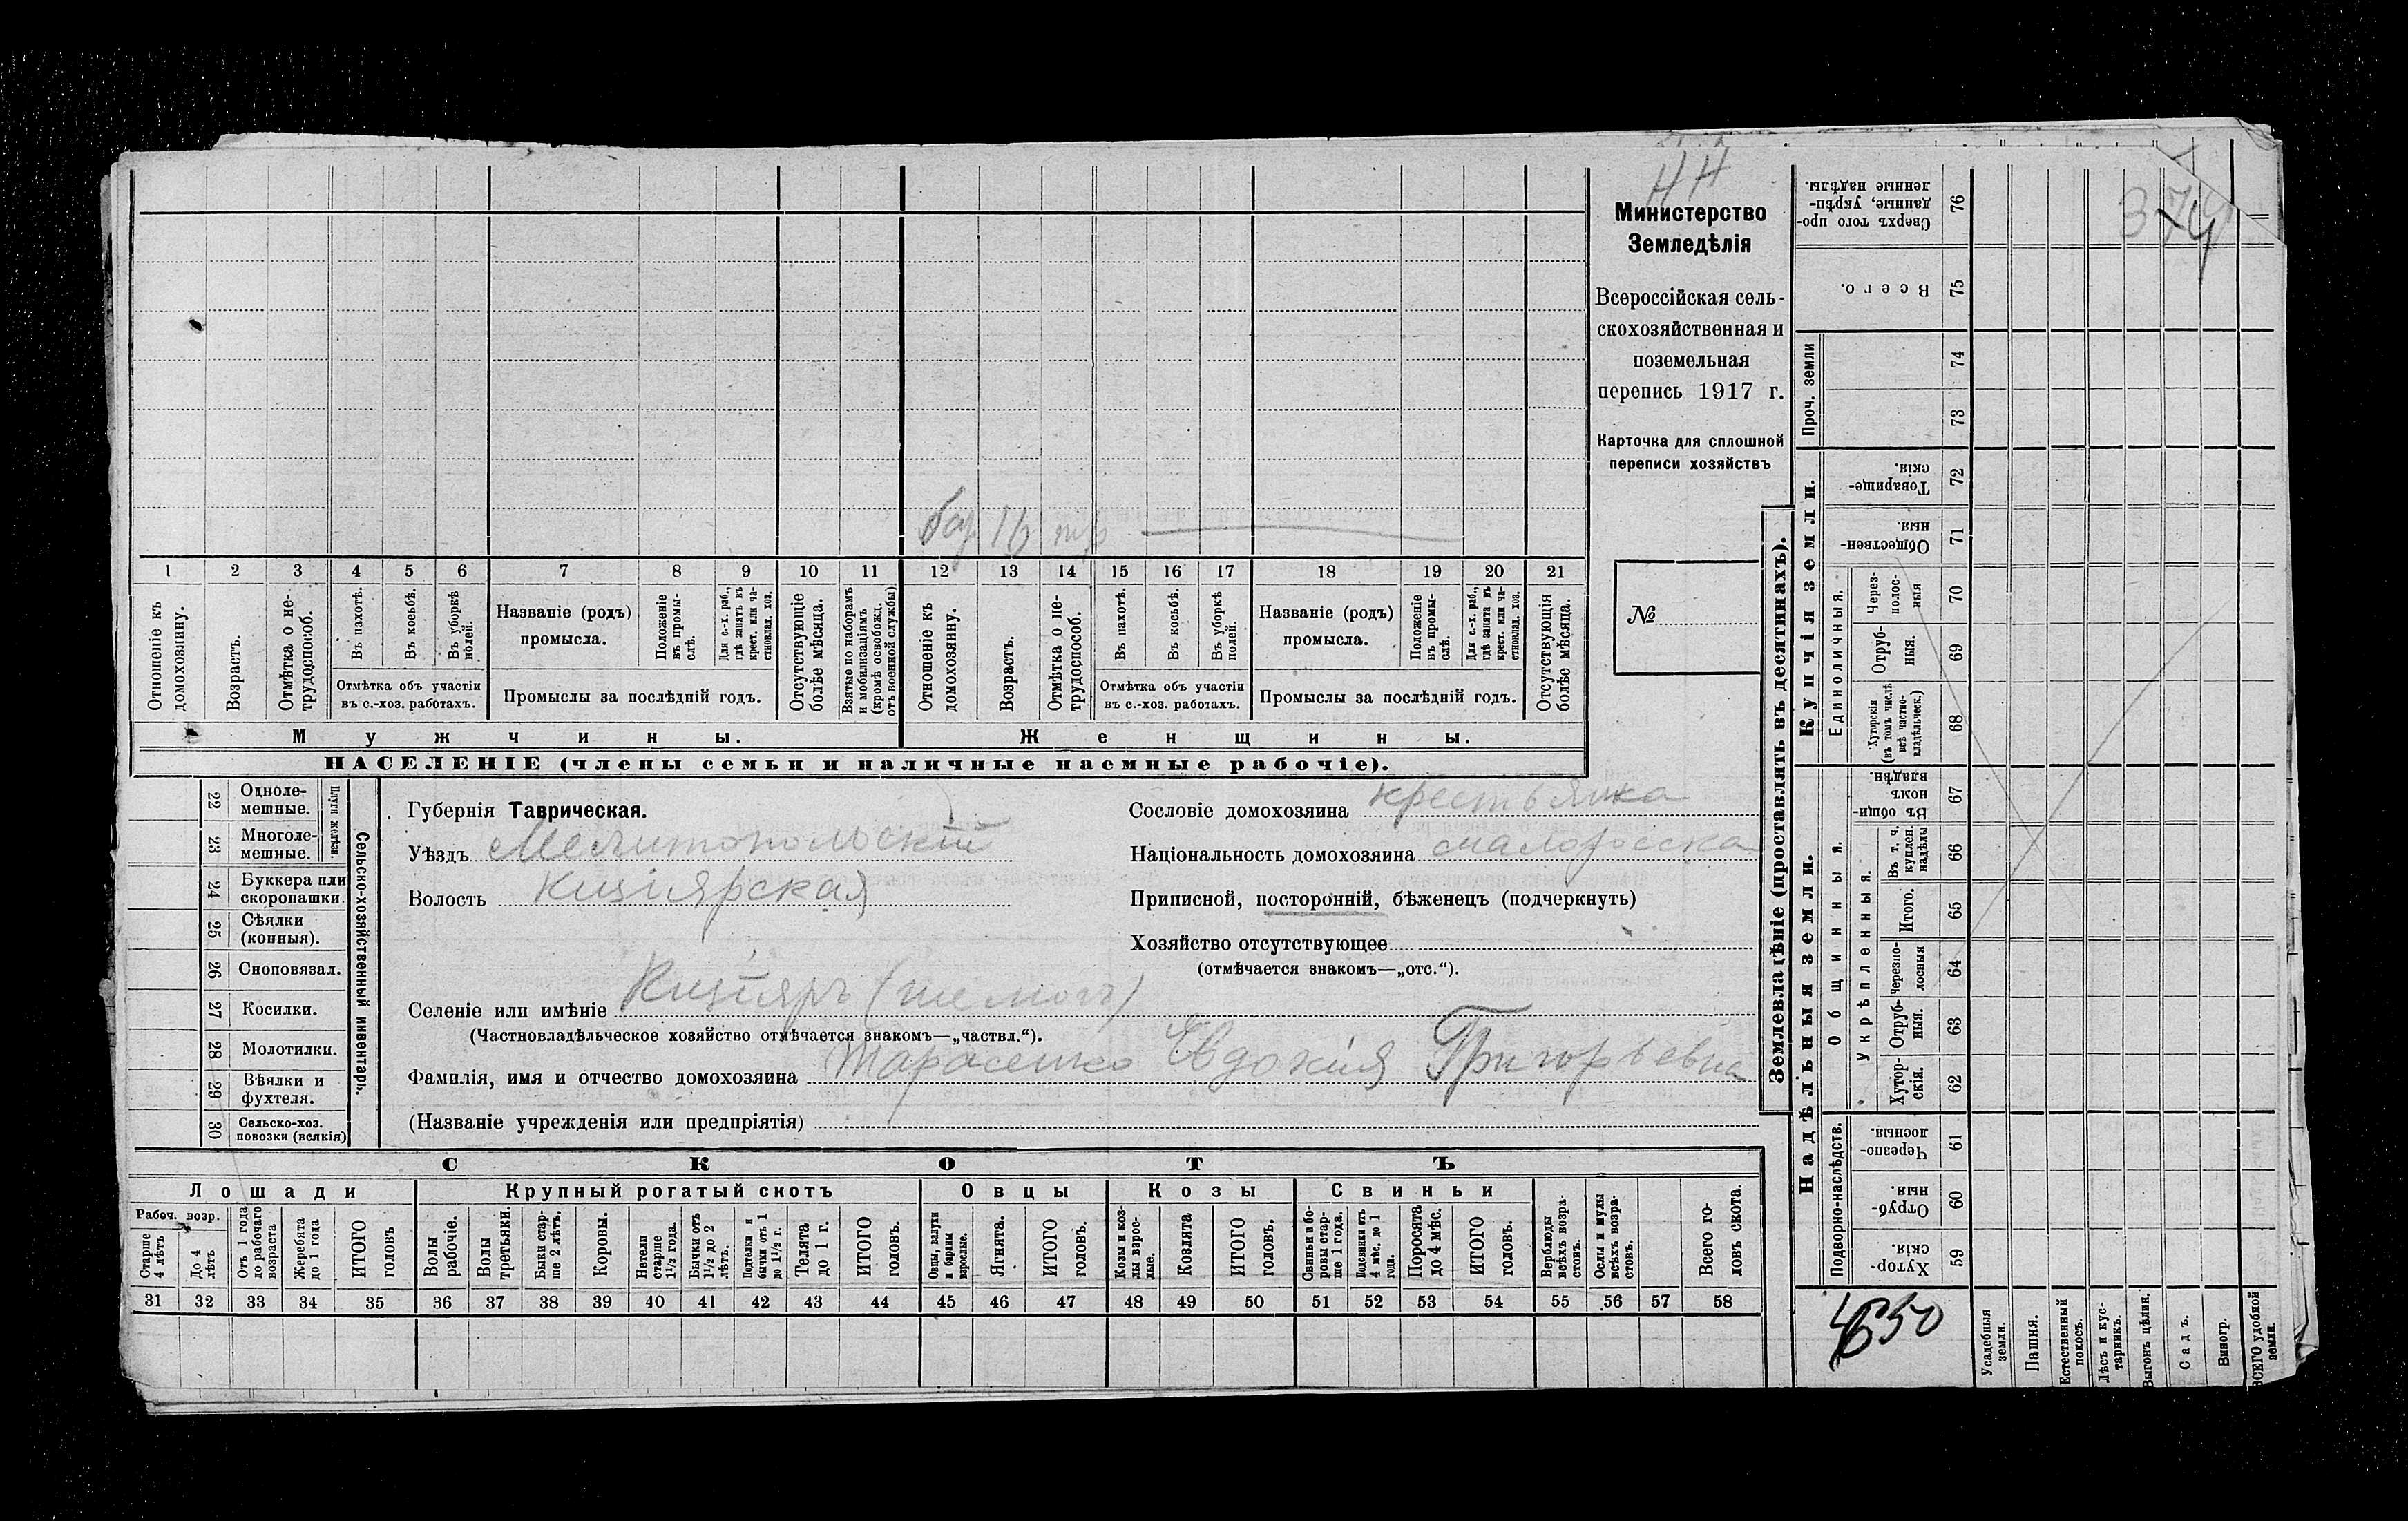 НН
374
Министерство
Земледѣлія
Всероссійская сель-
скохозяйственная и
поземельная
перепись 1917 г.
Карточка для сплошной
переписи хозяйствъ
№
1 2 3 4 5 6 7 8 9 10 11 12 13 14 15 16 17 18 19 20 21
Отношеніе къ домохозяину.
Возрастъ.
Отмѣтка о не-трудоспособ.
Въ пахотѣ.
Въ косьбѣ.
Въ уборкѣ полей.
Отмѣтка объ участіи
въ с.-хоз. работахъ.
Названіе (родъ)
промысла.
Положеніе въ промы-слѣ.
Для с.-х. раб., гдѣ занятъ въ крест. или ча-стновлад. хоз.
Промыслы за послѣдній годъ.
Отсутствующіе болѣе мѣсяца.
Взятые по наборамъ и мобилизаціямъ (кромѣ освобожд. отъ военной службы)
Отношеніе къ домохозяину.
Возрастъ.
Отмѣтка о не-трудоспособ.
Въ пахотѣ.
Въ косьбѣ.
Въ уборкѣ полей.
Отмѣтка объ участіи
въ с.-хоз. работахъ.
Названіе (родъ)
промысла.
Положеніе въ промы-слѣ.
Для с.-х. раб., гдѣ занята въ крест. или ча-стновлад. хоз.
Промыслы за послѣдній годъ.
Отсутствующія болѣе мѣсяца.
Мужчины.
Женщины.
НАСЕЛЕНІЕ (члены семьи и наличные наемные рабочіе).
22 Одноле-мешные.
23 Многоле-мешные.
Плуги желѣзн.
24 Буккера или скоропашки.
25 Сѣялки (конныя).
26 Сноповязал.
27 Косилки.
28 Молотилки.
29 Вѣялки и фухтеля.
30 Сельско-хоз. повозки (всякія)
Сельско-хозяйственный инвентарь.
Губернія Таврическая.
Уѣздъ Мелитопольскій
Волость Кизіярская
Селеніе или имѣніе Кизіяръ
(Частновладѣльческое хозяйство отмѣчается знакомъ—„частвл.“).
Фамилія, имя и отчество домохозяина Тарасенко Евдокія Григорьевна
(Названіе учрежденія или предпріятія)
Сословіе домохозяина крестьянка
Національность домохозяина малоросска
Приписной, посторонній, бѣженецъ (подчеркнуть)
Хозяйство отсутствующее
(отмѣчается знакомъ—„отс.“).
СКОТЪ
Лошади
Крупный рогатый скотъ
Овцы
Козы
Свиньи
Рабоч. возр.
Старше 4 лѣтъ
До 4 лѣтъ
Отъ 1 года до рабочаго возраста
Жеребята до 1 года
ИТОГО головъ
Волы рабочіе.
Волы третьяки.
Быки стар-ше 2 лѣтъ.
Коровы.
Нетели старше 1½ года.
Бычки отъ 1½ до 2 лѣтъ.
Подтелки и бычки отъ 1 до 1½ г.
Телята до 1 г.
ИТОГО головъ.
Овцы, валухи и бараны взрослые.
Ягнята.
ИТОГО головъ.
Козы и коз-лы взрос-лые.
Козлята
ИТОГО головъ.
Свиньи и бо-ровы стар-ше 1 года.
Подсвинки отъ 4 мѣс. до 1 года.
Поросята до 4 мѣс.
ИТОГО головъ.
Верблюды всѣхъ возра-стовъ.
Ослы и мулы всѣхъ возра-стовъ.
Всего го-ловъ скота.
31 32 33 34 35 36 37 38 39 40 41 42 43 44 45 46 47 48 49 50 51 52 53 54 55 56 57 58
Землевладѣніе (проставлять въ десятинахъ).
Сверхъ того про-данные, укрѣп-ленные надѣлы. 76
Всего. 75
Проч. земли 74
73
Купчія земли.
Товарище-скія. 72
Обществен-ныя. 71
Единоличныя.
Через-полос-ныя 70
Отруб-ныя. 69
Хуторскія (въ томъ числѣ всѣ частно-владѣльческ.) 68
Надѣльныя земли.
Общинныя.
Въ общи-номъ владѣн. 67
Укрѣпленныя.
Въ т. ч. куплен. надѣлы 66
Итого. 65
Черезпо-лосныя 64
Отруб-ныя. 63
Хутор-скія. 62
Подворно-наслѣдств.
Черезпо-лосныя. 61
Отруб-ныя. 60
Хутор-скія. 59
Усадебныя земли.
Пашня.
Естественный покосъ.
Лѣсъ и кус-тарникъ.
Выгонъ цѣлин.
Садъ.
Виногр.
ВСЕГО удобной земли.